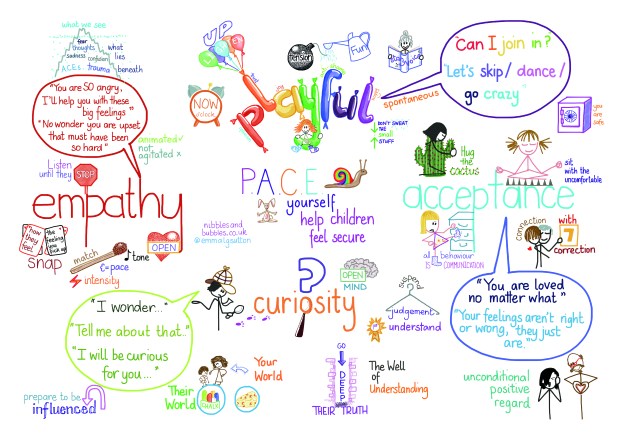 what we see
fear
thoughts
sadness confusion
A.C.Es. trauma
what
lies
beneath
"You are SO angry,
I'll help you with these
big feelings"
"No wonder you are upset
that must have been
so hard"
animated ✓
not
agitated x
Listen
until they
STOP
empathy
how
they
feel
the
feeling
SNAP
match
tone
= pace
intensity
OPEN
UP
NOW
o'clock
Playful
Fun
spontaneous
DON'T SWEAT
the
small
STUFF
"Can I join in?"
"Let's skip/ dance/
go crazy"
you
are
safe
P.A.C.E
yourself
help children
feel secure
nibblesand
bubbles.co.uk
@emmalgsutton
Hug
the
cactus
sit
with the
uncomfortable
acceptance
all behaviour
IS COMMUNICATION
connection
with
7
correction
"You are loved
no matter what"
"Your feelings aren't right
or wrong, they just
are."
unconditional
positive
regard
?
curiosity
OPEN
MIND
suspend
judgement
understand
"I wonder..."
"Tell me about that.."
"I will be curious
for you..."
prepare to be
influenced
Your
World
Their
World
GO
DEEP
THEIR TRUTH
The Well
of
Understanding